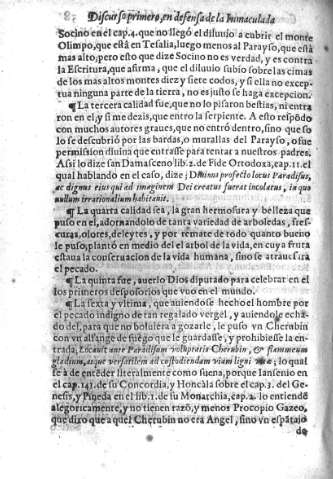 Discurso primero, en defensa de la Inmaculada
Socino en el cap.4. que no llegó el diluuio a cubrir el monte
Olimpo, que está en Tesalia, luego menos al Parayso, que está
mas alto; pero esto que dize Socino no es verdad, y es contra
la Escritura, que afirma, que el diluuio subio sobre las cimas
de los mas altos montes diez y siete codos, y si ella no excep-
tua ninguna parte de la tierra, no es justo se haga excepcion.
¶ La tercera calidad fue, que no lo pisaron bestias, ni entra
ron en el, y si me dezis, que entro la serpiente. A esto respõdo
con muchos autores graues, que no entró dentro, sino que so
lo se descubrió por las bardas, o murallas del Parayso, o fue
permission diuina que entrasse para tentar a nuestros padres.
Assi lo dize san Damasceno lib.2. de Fide Ortodoxa, cap.11. el
qual hablando en el caso, dize; Diuinus profecto locus Paradisus,
ac dignus eius qui ad imaginem Dei creatus fuerat incolatus, in quo
nullum irrationalium habitauit.
¶ La quarta calidad sea, la gran hermosura y belleza que
puso en el, adornandolo de tanta variedad de arboledas, fres-
curas, olores, deleytes, y por remate de todo quanto bueno
le puso, plantò en medio del el arbol de la vida, en cuya fruta
estaua la conseruacion de la vida humana, sino se atrauessara
el pecado.
¶ La quinta fue, auerlo Dios diputado para celebrar en el
los primeros desposorios que vuo en el mundo.
¶ La sexta y vltima, que auiendose hecho el hombre por
el pecado indigno de tan regalado vergel, y auiendole echa-
do del, para que no boluiera a gozarle, le puso vn Cherubin
con vn alfange de fuego que le guardasse, y prohibiesse la en-
trada, Locauit ante Paradisum voluptatis Cherubin, & flammeum
gladium, atque versatilem ad custodiendam viam ligni vitæ, lo qual
se à de entẽder literalmente como suena, porque Iansenio en
el cap.143. de su Concordia, y Honcàla sobre el cap.3. del Ge-
nesis, y Pineda en el lib.1. de su Monarchia, cap.2. lo entiendẽ
alegoricamente, y no tienen razõ, y menos Procopio Gazeo,
que dixo que aquel Cherubin no era Angel, sino vn espãtajo
de